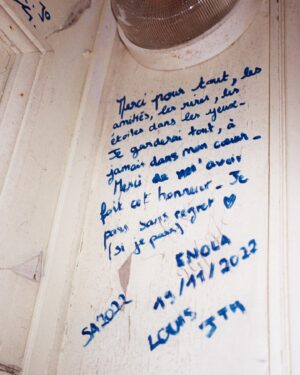 Merci pour tout, les
amitiés, les rires, les
étoiles dans les yeux.
Je garderai tout, à
jamais dans mon cœur.
Merci de m'avoir
fait cet honneur. Je
pars sans regret ♡
(si je pars)
ENOLA
19/11/2022
SA2022
LOUIS
JTM